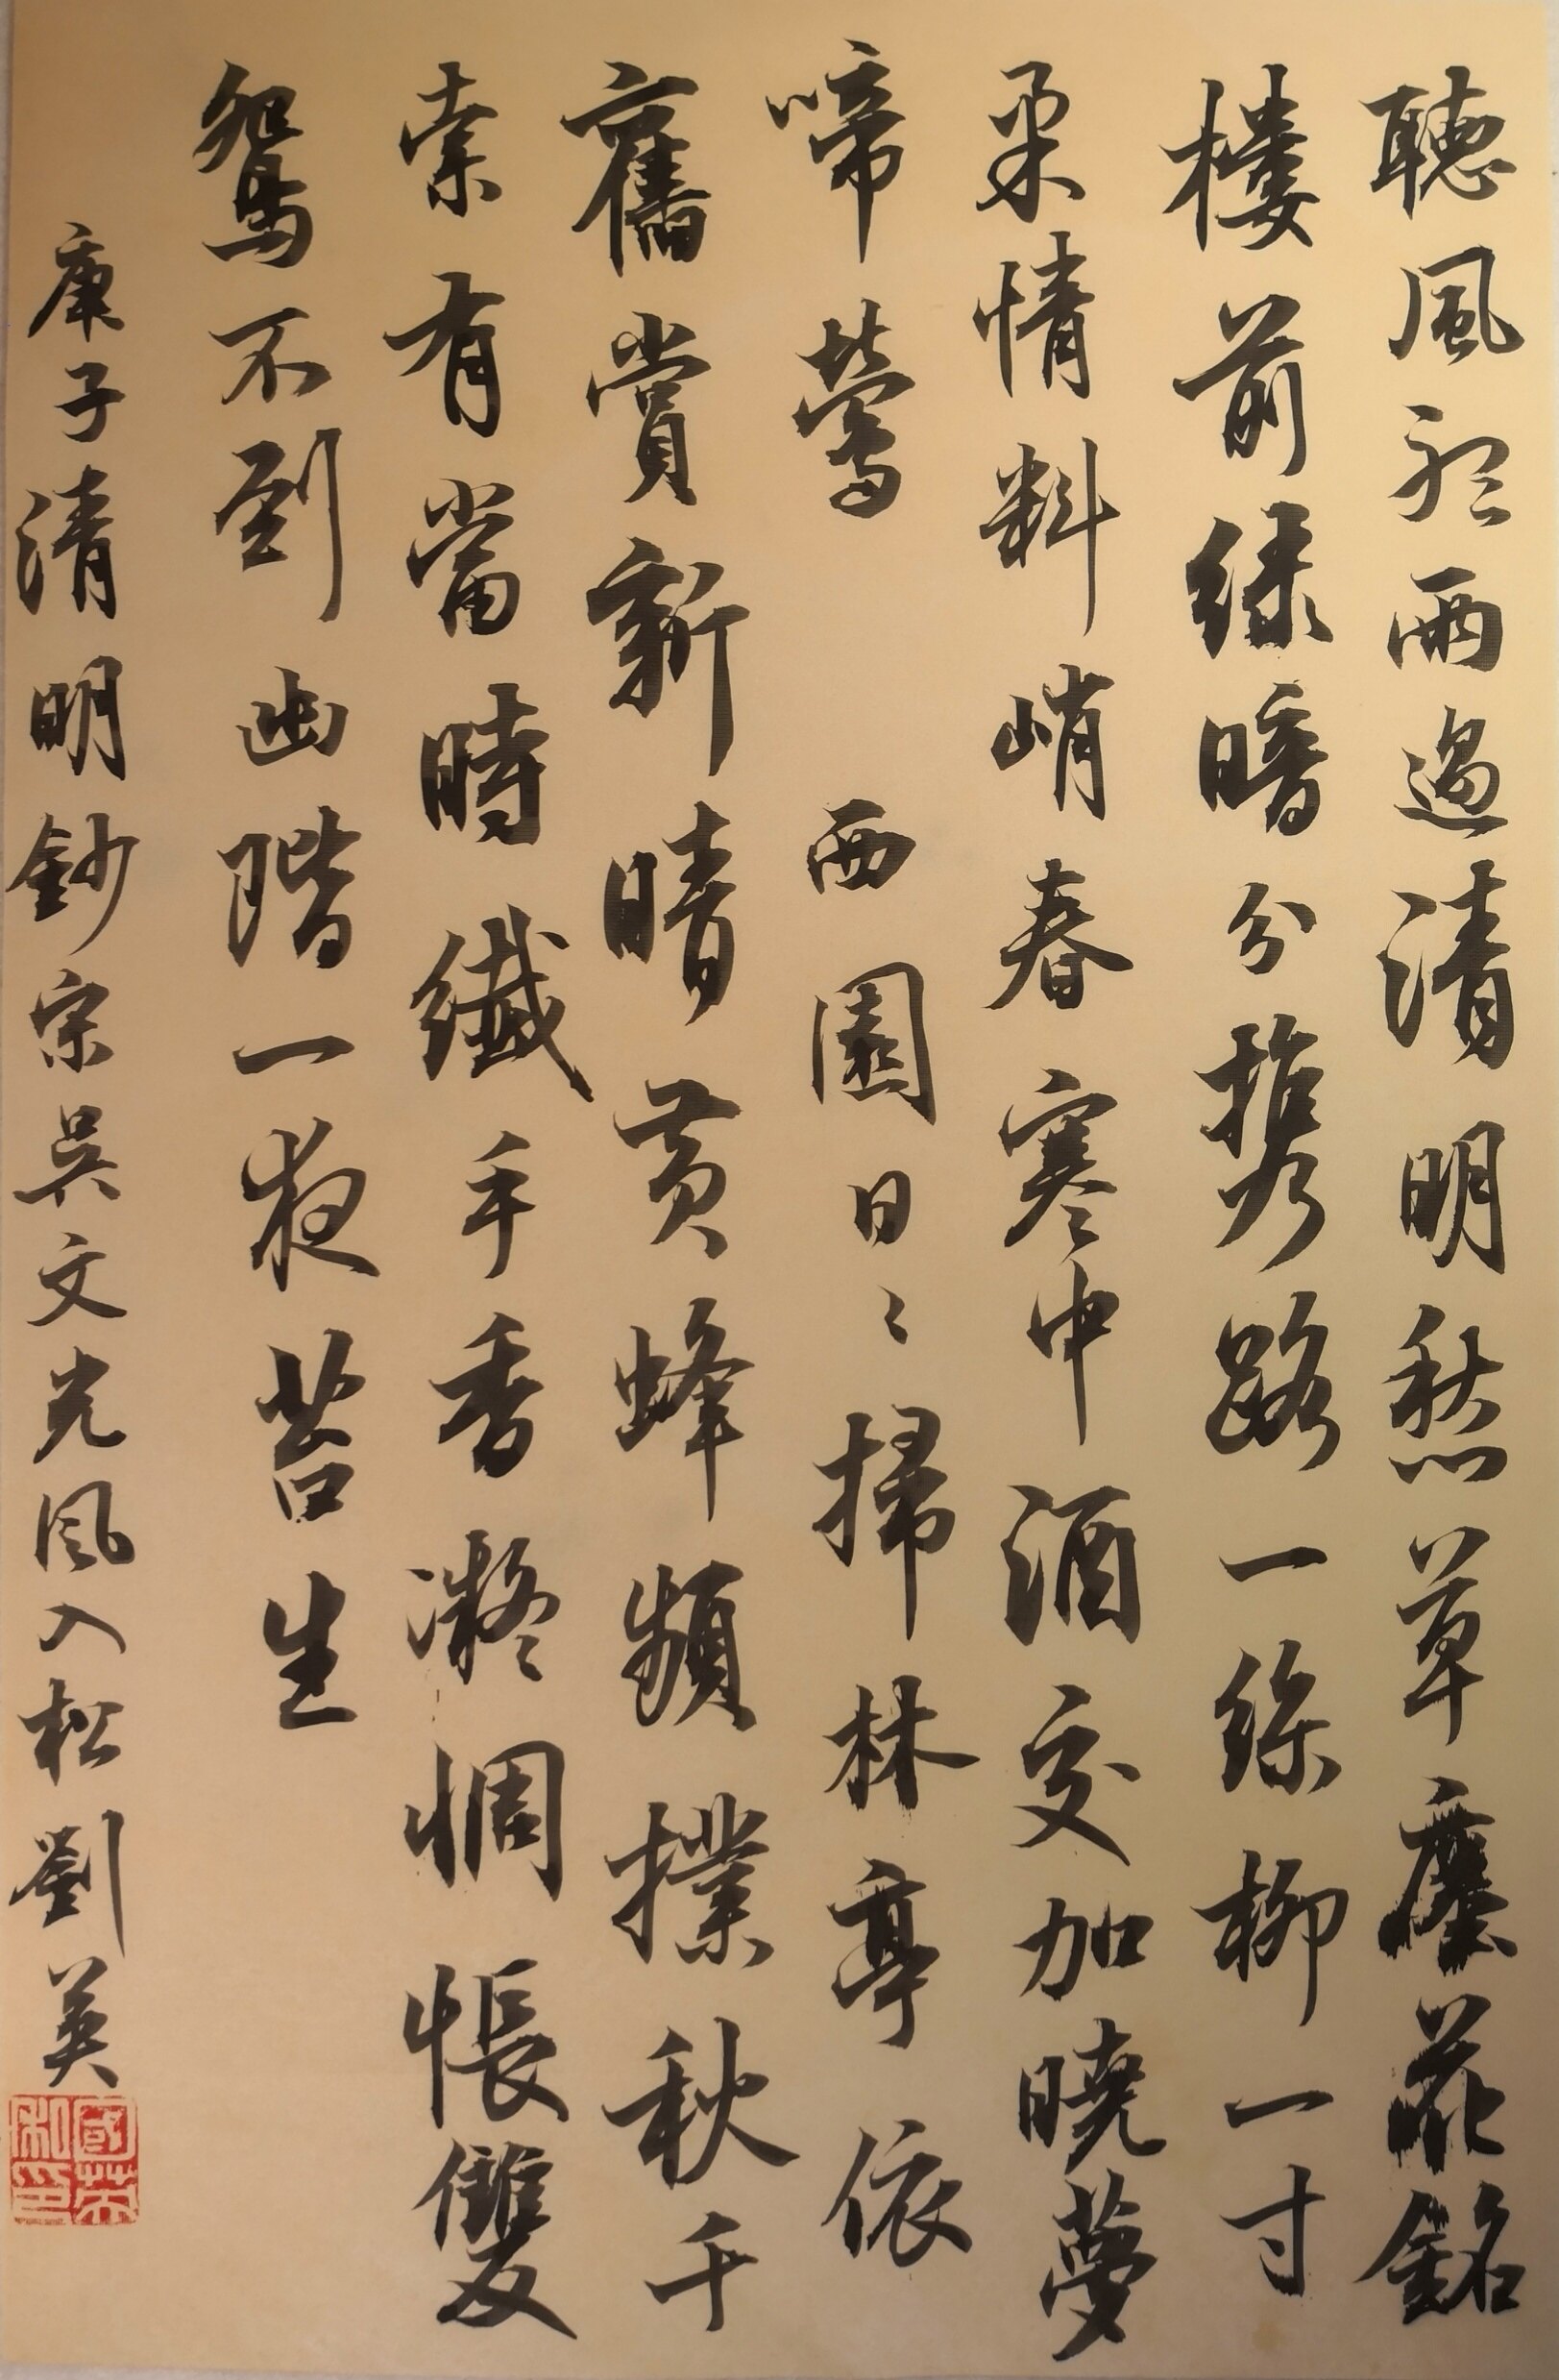 聽風聽雨過清明愁草瘞花銘
樓前綠暗分攜路一絲柳一寸
柔情料峭春寒中酒交加曉夢
啼鶯　西園日〻掃林亭依
舊賞新晴黃蜂頻撲秋千
索有當時纖手香凝惆悵雙
鴛不到幽階一夜苔生
庚子清明鈔宋吳文光風入松劉英